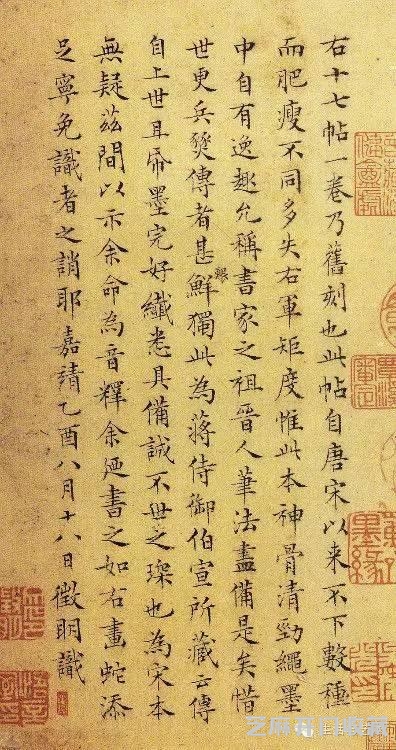 右十七帖一卷乃舊刻也此帖自唐宋以来不下數種
而肥瘦不同多失右軍矩度惟此本神骨清勁繩墨
中自有逸趣允稱書家之祖晉人筆法盡備是矣惜
世更兵燹傳者甚鮮獨此為蔣侍御伯宣所藏云傳
自上世且帋墨完好纖悉具備誠不世之琛也為宋本
無疑茲間以示余命為音釋余廼書之如右畫蛇添
足寧免識者之誚耶嘉靖乙酉八月十八日徵明識
墨緣